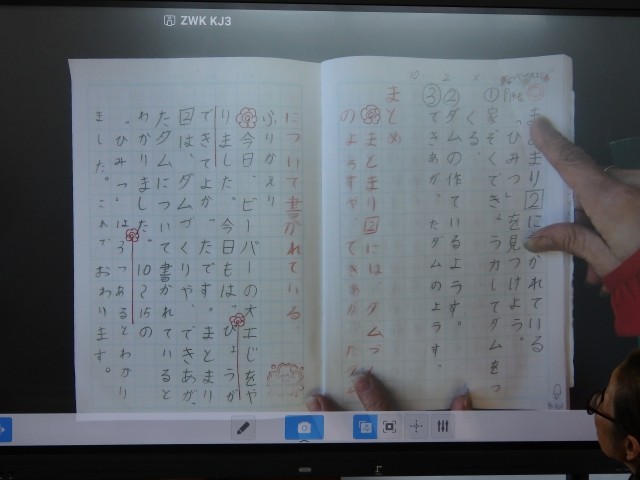 ZWK KJ3
まとまり2に書かれている
「ひみつ」を見つけよう。
①家ぞくできょう力してダムをつ
くる
②ダムの作ているようす。
③できあがったダムのようす。
まとめ
まとまり2には、ダムづくり
のようすや、できあがったダム
について書かれている
ふりかえり
今日、ビーバーの大工じをや
りました。今日もは。ぴょうが
できてよかったです。まとまり
2は、ダムづくりや、できあが
たダムについて書かれていると
わかりました。10と15の
"ひみつ"は3つあるとわかり
ました。これでおわります。